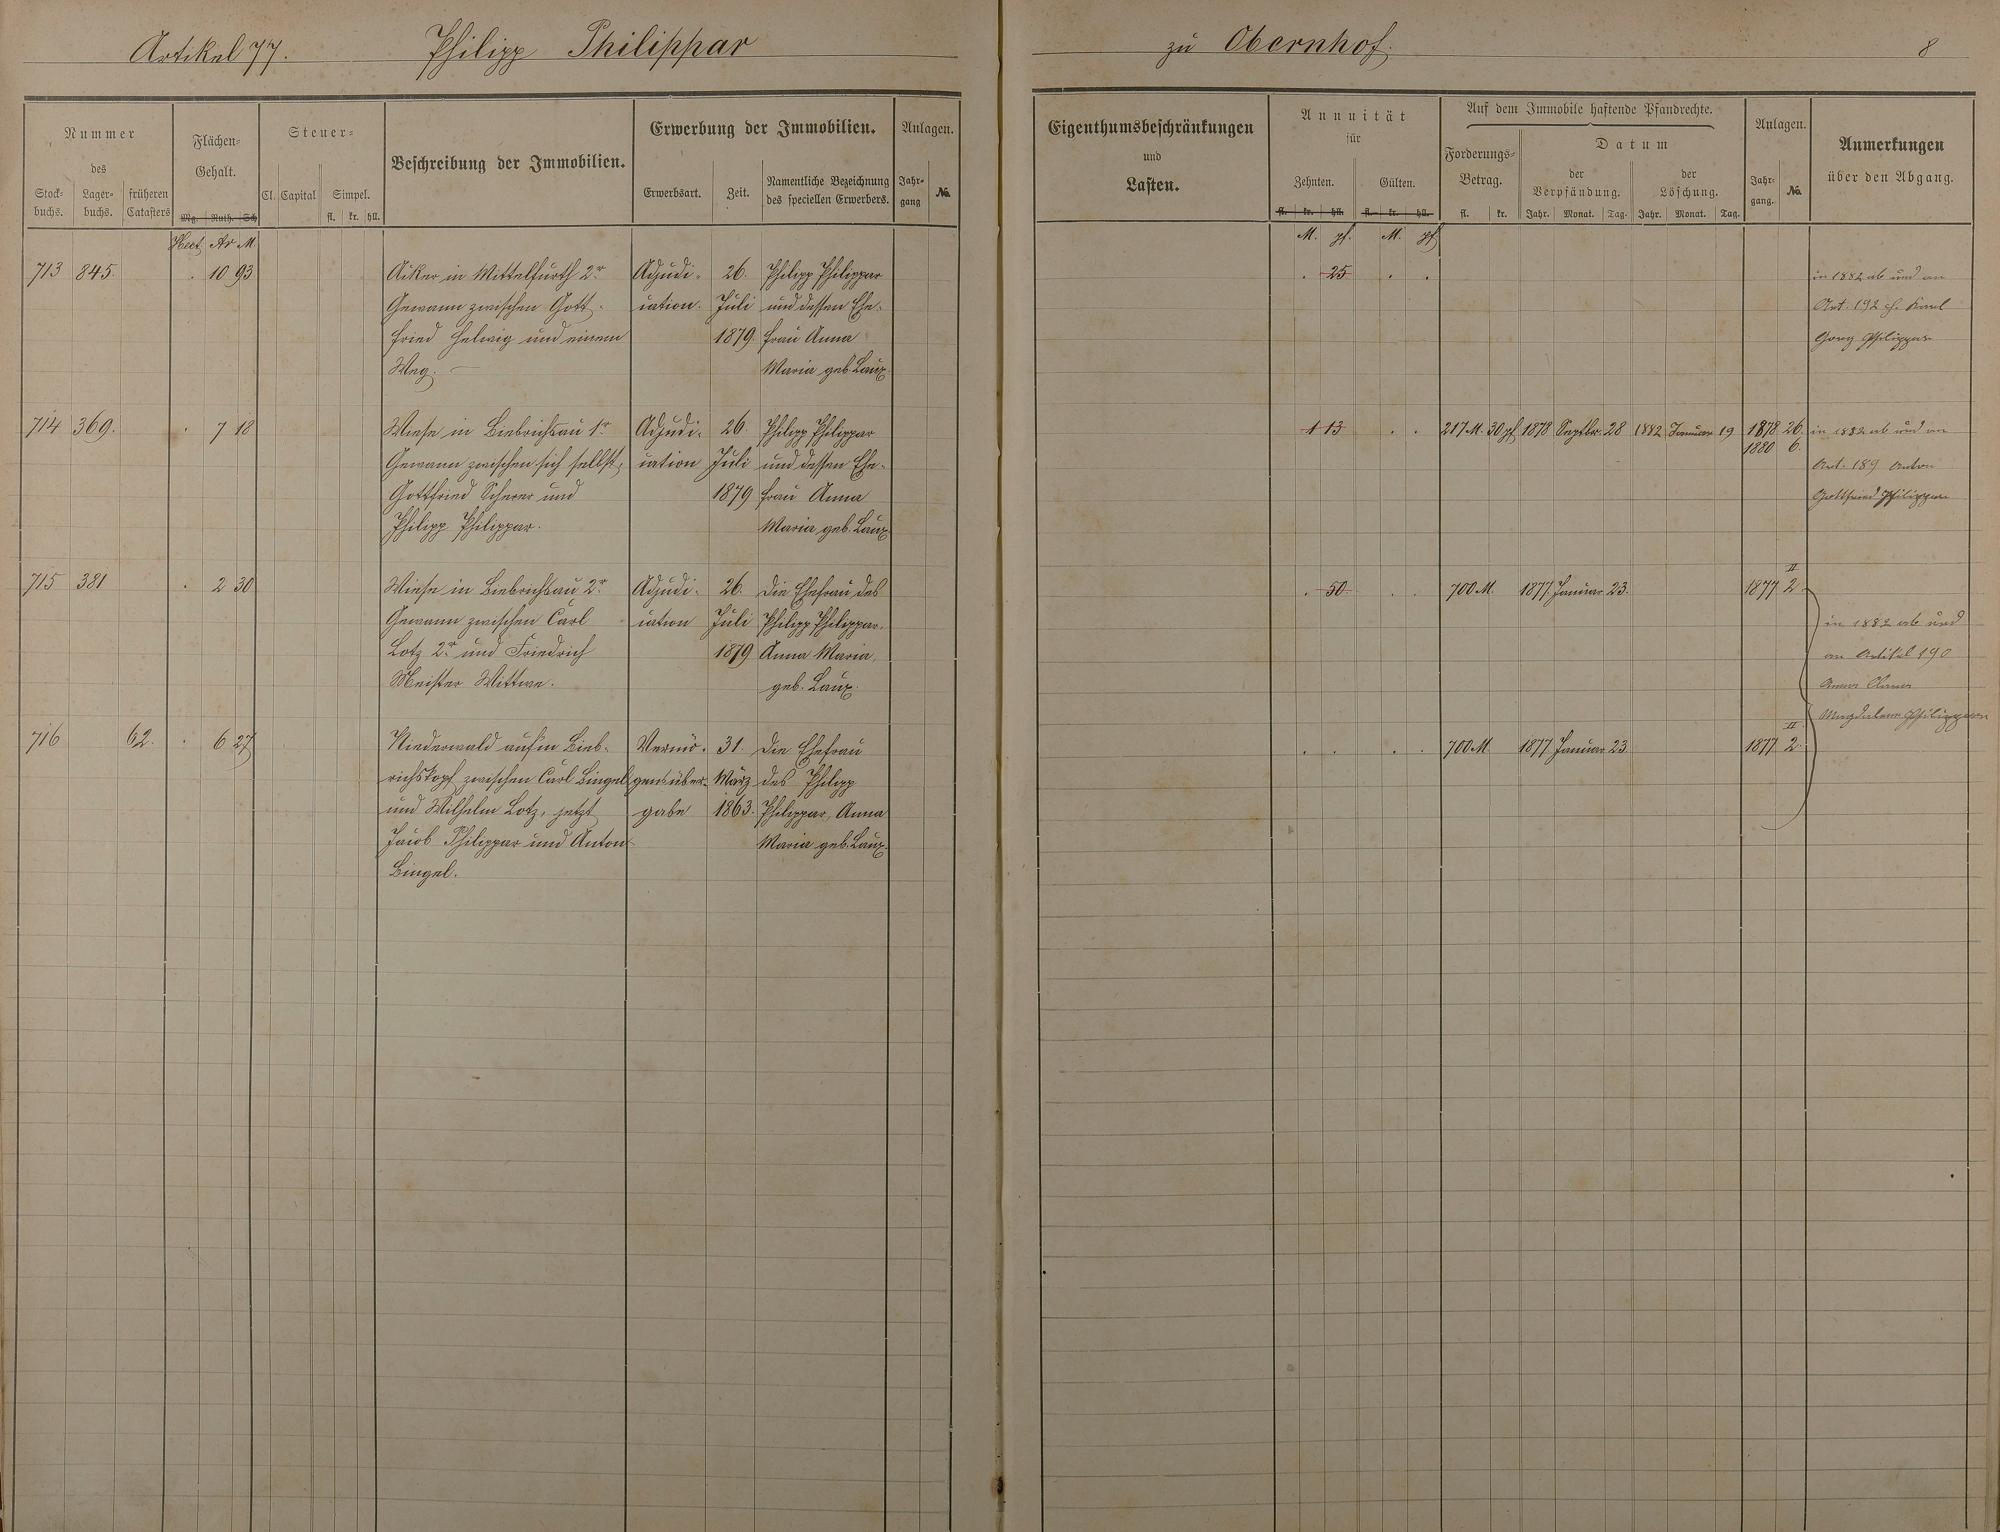 Artikel 77. Philipp Philippar
zu Obernhof. 8
Nummer
des
Stock-
buchs.
Lager-
buchs.
früheren
Catasters
Flächen-
Gehalt.
Mg. Ruth. Sch
Steuer-
Cl. Capital Simpel.
fl. kr. hll.
Beschreibung der Immobilien.
Erwerbung der Immobilien.
Erwerbsart. Zeit.
Namentliche Bezeichnung
des speciellen Erwerbers.
Anlagen.
Jahr-
gang
No.
Eigenthumsbeschränkungen
und
Lasten.
Annuität
für
Zehnten. Gülten.
fl. kr. hll. fl. kr. hll.
Auf dem Immobile haftende Pfandrechte.
Forderungs-
Betrag.
fl. kr.
Datum
der
Verpfändung.
Jahr. Monat. Tag.
der
Löschung.
Jahr. Monat. Tag.
Anlagen.
Jahr-
gang.
No.
Anmerkungen
über den Abgang.
Hect Ar M.
M. pf. M. pf
713 845. . 10 93
Acker in Mittelfurth 2r
Gewann zwischen Gott-
fried Helwig und einem
Weg. —
Adjudi-
cation.
26.
Juli
1879.
Philipp Philippar
und dessen Ehe-
frau Anna
Maria geb. Laux.
. 25 . .
in 1882 ab und an
Art. 192 f. Karl
Georg Philippar
714 369. . 7 18
Wiese in Biebrichsau 1r
Gewann zwischen sich selbst,
Gottfried Scherer und
Philipp Philippar.
Adjudi-
cation
26.
Juli
1879
Philipp Philippar
und dessen Ehe-
frau Anna
Maria geb. Laux
1 13 . . 217 M. 30 pf 1878 Septbr. 28 1882 Januar 19 1878 26.
1880 6.
in 1882 ab und an
Art. 189 Anton
Gottfried Philippar
715 381 . 2 30
Wiese in Biebrichsau 2r
Gewann zwischen Carl
Lotz 2r und Friedrich
Meister Wittwe.
Adjudi-
cation
26.
Juli
1879
Die Ehefrau des
Philipp Philippar,
Anna Maria,
geb. Laux.
. 50 . . 700 M. 1877 Januar 23. 1877 II 2
in 1882 ab und
an Artikel 190
Magdalene Philippar
716 62. . 6 27
Niederwald auf'm Bieb-
richskopf zwischen Carl Bingel
und Wilhelm Lotz, jetzt
Jacob Philippar und Anton
Bingel.
Vermö-
gensüber-
gabe
31.
März
1863.
Die Ehefrau
des Philipp
Philippar, Anna
Maria geb. Laux.
. . . . 700 M. 1877 Januar 23. 1877 II 2.